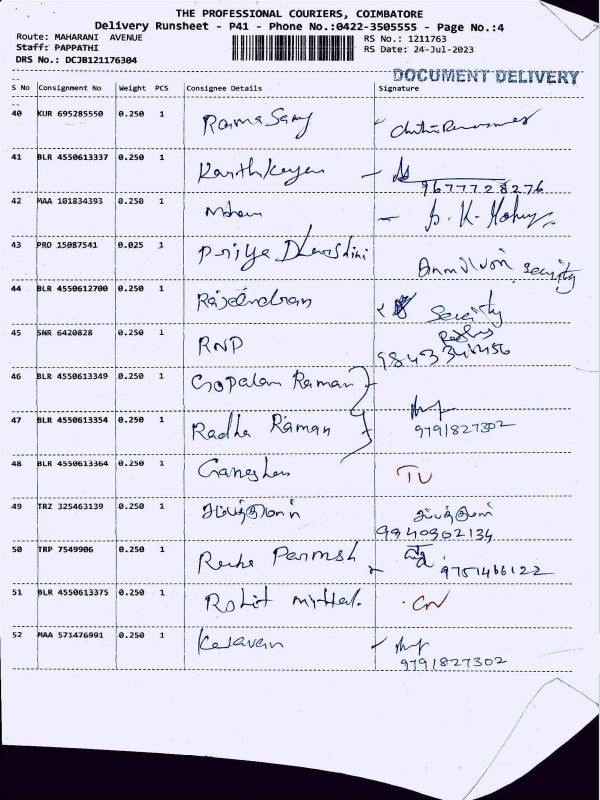 THE PROFESSIONAL COURIERS, COIMBATORE
Delivery Runsheet - P41 - Phone No.:0422-3505555 - Page No.:4
Route: MAHARANI AVENUE RS No.: 1211763
Staff: PAPPATHI RS Date: 24-Jul-2023
DRS No.: DCJB121176304
DOCUMENT DELIVERY
S No Consignment No Weight PCS Consignee Details Signature
40 KUR 695285550 0.250 1 Rama Samy
41 BLR 4550613337 0.250 1 Karthkeyen
9677728276
42 MAA 101834393 0.250 1 Mohan
43 PRO 15087541 0.025 1 Priya Dharshini
security
44 BLR 4550612700 0.250 1 Rajendran
Security
45 SNR 6420828 0.250 1 RNP
46 BLR 4550613349 0.250 1 Gopalan Raman
47 BLR 4550613354 0.250 1 Radha Raman
9791827302
48 BLR 4550613364 0.250 1 Ganeshan
49 TRZ 325463139 0.250 1
9940902134
50 TRP 7549906 0.250 1
9751466122
51 BLR 4550613375 0.250 1 Rohit mittal.
52 MAA 571476991 0.250 1 Kesavan
9791827302